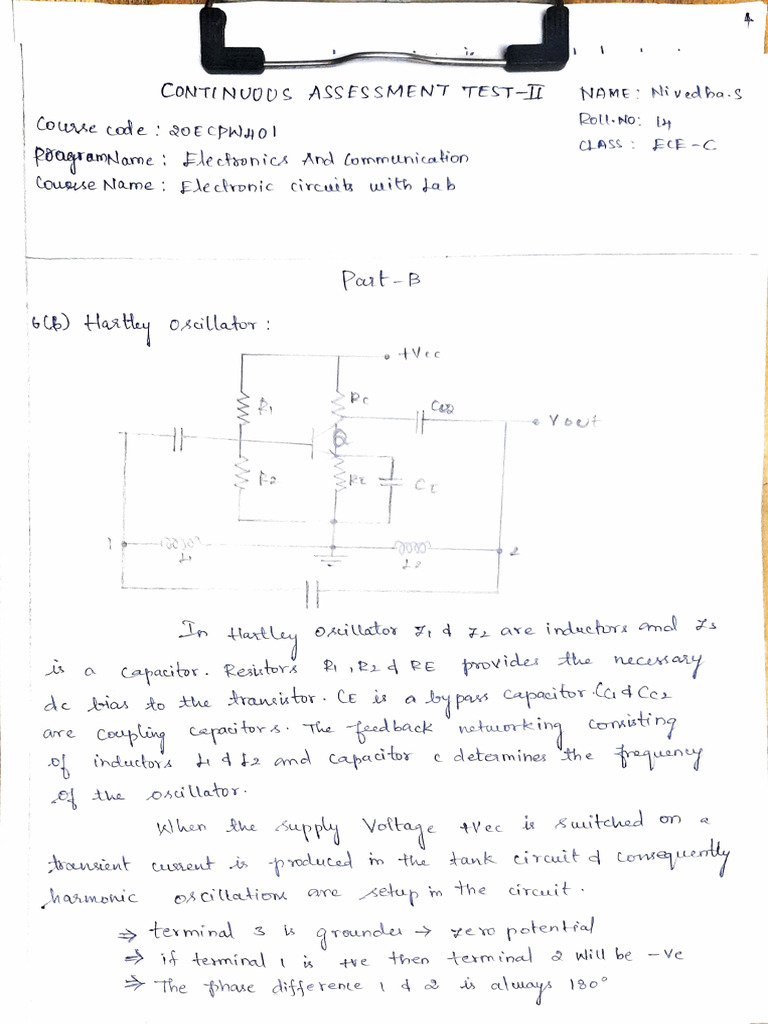 4
CONTINUOUS ASSESSMENT TEST-II
NAME: Nivedha.S
Roll.No: 14
CLASS: ECE-C
Course code: 20ECPW401
Program Name: Electronics And Communication
Course Name: Electronic circuits with Lab
Part-B
6(B) Hartley Oscillator:
+Vcc
R1
RC
CC2
Vout
R2
RE
CE
1
L1
L2
2
In Hartley Oscillator Z1 & Z2 are inductors and Z3
is a capacitor. Resistors R1, R2 & RE provides the necessary
dc bias to the transistor. CE is a bypass capacitor. CC1 & CC2
are coupling capacitors. The feedback networking consisting
of inductors L1 & L2 and capacitor c determines the frequency
of the oscillator.
When the supply Voltage +Vcc is switched on a
transient current is produced in the tank circuit & consequently
harmonic oscillations are setup in the circuit.
⇒ terminal 3 is grounder → zero potential
⇒ if terminal 1 is +ve then terminal 2 will be -ve
⇒ The phase difference 1 & 2 is always 180°